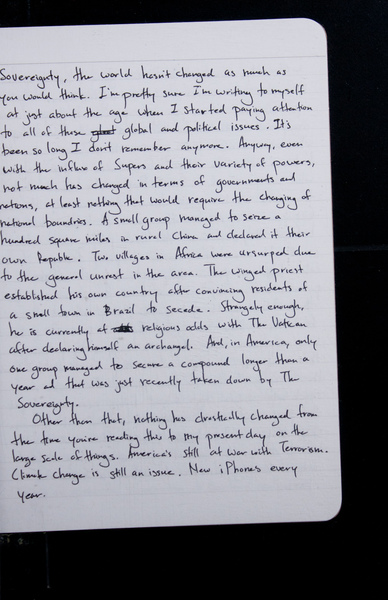 Sovereignty, the world hasn't changed as much as
you would think. I'm pretty sure I'm writing to myself
at just about the age when I started paying attention
to all of these global and political issues. It's
been so long I don't remember anymore. Anyway, even
with the influx of Supers and their variety of powers,
not much has changed in terms of governments and
nations, at least nothing that would require the changing of
national boundries. A small group managed to seize a
hundred square miles in rural China and declared it their
own Republic. Two villages in Africa were usurped due
to the general unrest in the area. The winged priest
established his own country after convincing residents of
a small town in Brazil to secede. Strangely enough,
he is currently at religious odds with The Vatican
after declaring himself an archangel. And, in America, only
one group managed to secure a compound longer than a
year and that was just recently taken down by The
Sovereignty.
Other than that, nothing has drastically changed from
the time you're reading this to my present day, on the
large scale of things. America's still at war with Terrorism.
Climate change is still an issue. New iPhones every
year.